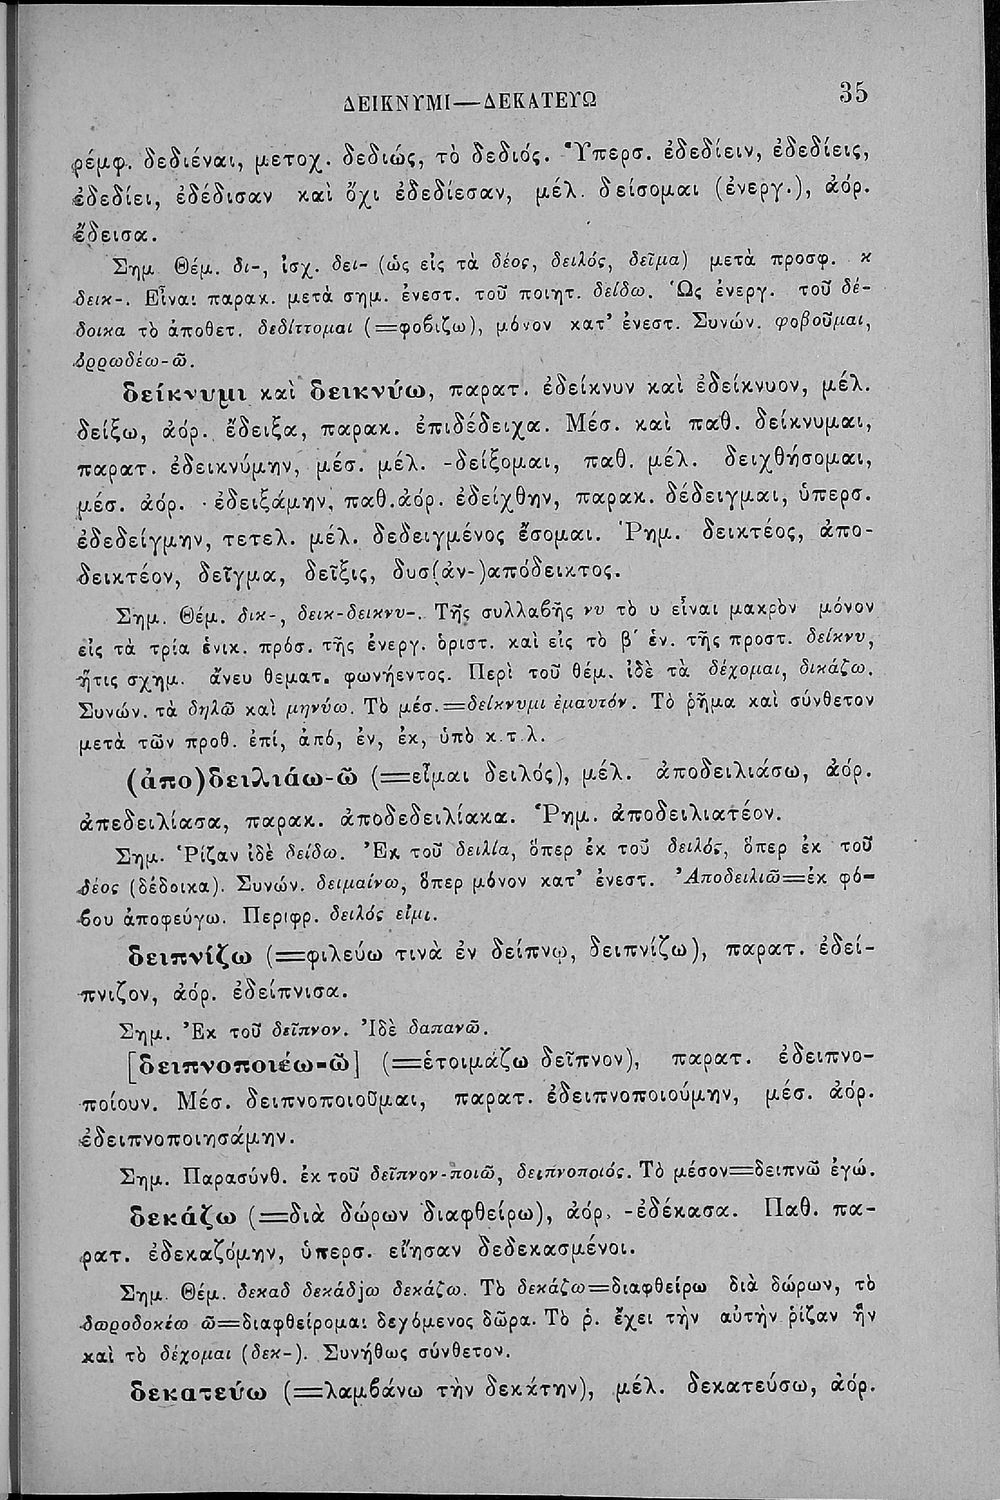 ΔΕΙΚΝΥΜΙ—ΔΕΚΑΤΕΥΩ 35
ρέμφ. δεδιέναι, μετοχ. δεδιώς, τὸ δεδιός. Ὑπερσ. ἐδεδίειν, ἐδεδίεις,
ἐδεδίει, ἐδέδισαν καὶ ὄχι ἐδεδίεσαν, μέλ. δείσομαι (ἐνεργ.), ἀόρ.
ἔδεισα.
Σημ. Θέμ. δι-, ἰσχ. δει- (ὡς εἰς τὰ δέος, δειλός, δεῖμα) μετὰ προσφ. κ
δεικ-. Εἶναι παρακ. μετὰ σημ. ἐνεστ. τοῦ ποιητ. δείδω. Ὡς ἐνεργ. τοῦ δέ-
δοικα τὸ ἀποθετ. δεδίττομαι (=φοβίζω), μόνον κατ' ἐνεστ. Συνών. φοβοῦμαι,
ὀρρωδέω-ῶ.
δείκνυμι καὶ δεικνύω, παρατ. ἐδείκνυν καὶ ἐδείκνυον, μέλ.
δείξω, ἀόρ. ἔδειξα, παρακ. ἐπιδέδειχα. Μέσ. καὶ παθ. δείκνυμαι,
παρατ. ἐδεικνύμην, μέσ. μέλ. -δείξομαι, παθ. μέλ. δειχθήσομαι,
μέσ. ἀόρ. -ἐδειξάμην, παθ. ἀόρ. ἐδείχθην, παρακ. δέδειγμαι, ὑπερσ.
ἐδεδείγμην, τετελ. μέλ. δεδειγμένος ἔσομαι. Ῥημ. δεικτέος, ἀπο-
δεικτέον, δεῖγμα, δεῖξις, δυσ(ἀν-)απόδεικτος.
Σημ. Θέμ. δικ-, δεικ-δεικνυ-. Τῆς συλλαβῆς νυ τὸ υ εἶναι μακρὸν μόνον
εἰς τὰ τρία ἑνικ. πρόσ. τῆς ἐνεργ. ὁριστ. καὶ εἰς τὸ β΄ ἑν. τῆς προστ. δείκνυ,
ἥτις σχημ. ἄνευ θεματ. φωνήεντος. Περὶ τοῦ θέμ. ἰδὲ τὰ δέχομαι, δικάζω.
Συνών. τὰ δηλῶ καὶ μηνύω. Τὸ μέσ.=δείκνυμι ἐμαυτόν. Τὸ ῥῆμα καὶ σύνθετον
μετὰ τῶν προθ. ἐπί, ἀπό, ἐν, ἐκ, ὑπὸ κ.τ.λ.
(ἀπο)δειλιάω-ῶ (=εἶμαι δειλός), μέλ. ἀποδειλιάσω, ἀόρ.
ἀπεδειλίασα, παρακ. ἀποδεδειλίακα. Ῥημ. ἀποδειλιατέον.
Σημ. Ῥίζαν ἰδὲ δείδω. Ἐκ τοῦ δειλία, ὅπερ ἐκ τοῦ δειλός, ὅπερ ἐκ τοῦ
δέος (δέδοικα). Συνών. δειμαίνω, ὅπερ μόνον κατ' ἐνεστ. Ἀποδειλιῶ=ἐκ φό-
βου ἀποφεύγω. Περιφρ. δειλός εἰμι.
δειπνίζω (=φιλεύω τινὰ ἐν δείπνῳ, δειπνίζω), παρατ. ἐδεί-
πνιζον, ἀόρ. ἐδείπνισα.
Σημ. Ἐκ τοῦ δεῖπνον. Ἰδὲ δαπανῶ.
[δειπνοποιέω-ῶ] (=ἑτοιμάζω δεῖπνον), παρατ. ἐδειπνο-
ποίουν. Μέσ. δειπνοποιοῦμαι, παρατ. ἐδειπνοποιούμην, μέσ. ἀόρ.
ἐδειπνοποιησάμην.
Σημ. Παρασύνθ. ἐκ τοῦ δεῖπνον-ποιῶ, δειπνοποιός. Τὸ μέσον=δειπνῶ ἐγώ.
δεκάζω (=διὰ δώρων διαφθείρω), ἀόρ. -ἐδέκασα. Παθ. πα-
ρατ. ἐδεκαζόμην, ὑπερσ. εἴησαν δεδεκασμένοι.
Σημ. Θέμ. δεκαδ δεκάδjω δεκάζω. Τὸ δεκάζω=διαφθείρω διὰ δώρων, τὸ
δωροδοκέω ῶ=διαφθείρομαι δεχόμενος δῶρα. Τὸ ῥ. ἔχει τὴν αὐτὴν ῥίζαν ἣν
καὶ τὸ δέχομαι (δεκ-). Συνήθως σύνθετον.
δεκατεύω (=λαμβάνω τὴν δεκάτην), μέλ. δεκατεύσω, ἀόρ.